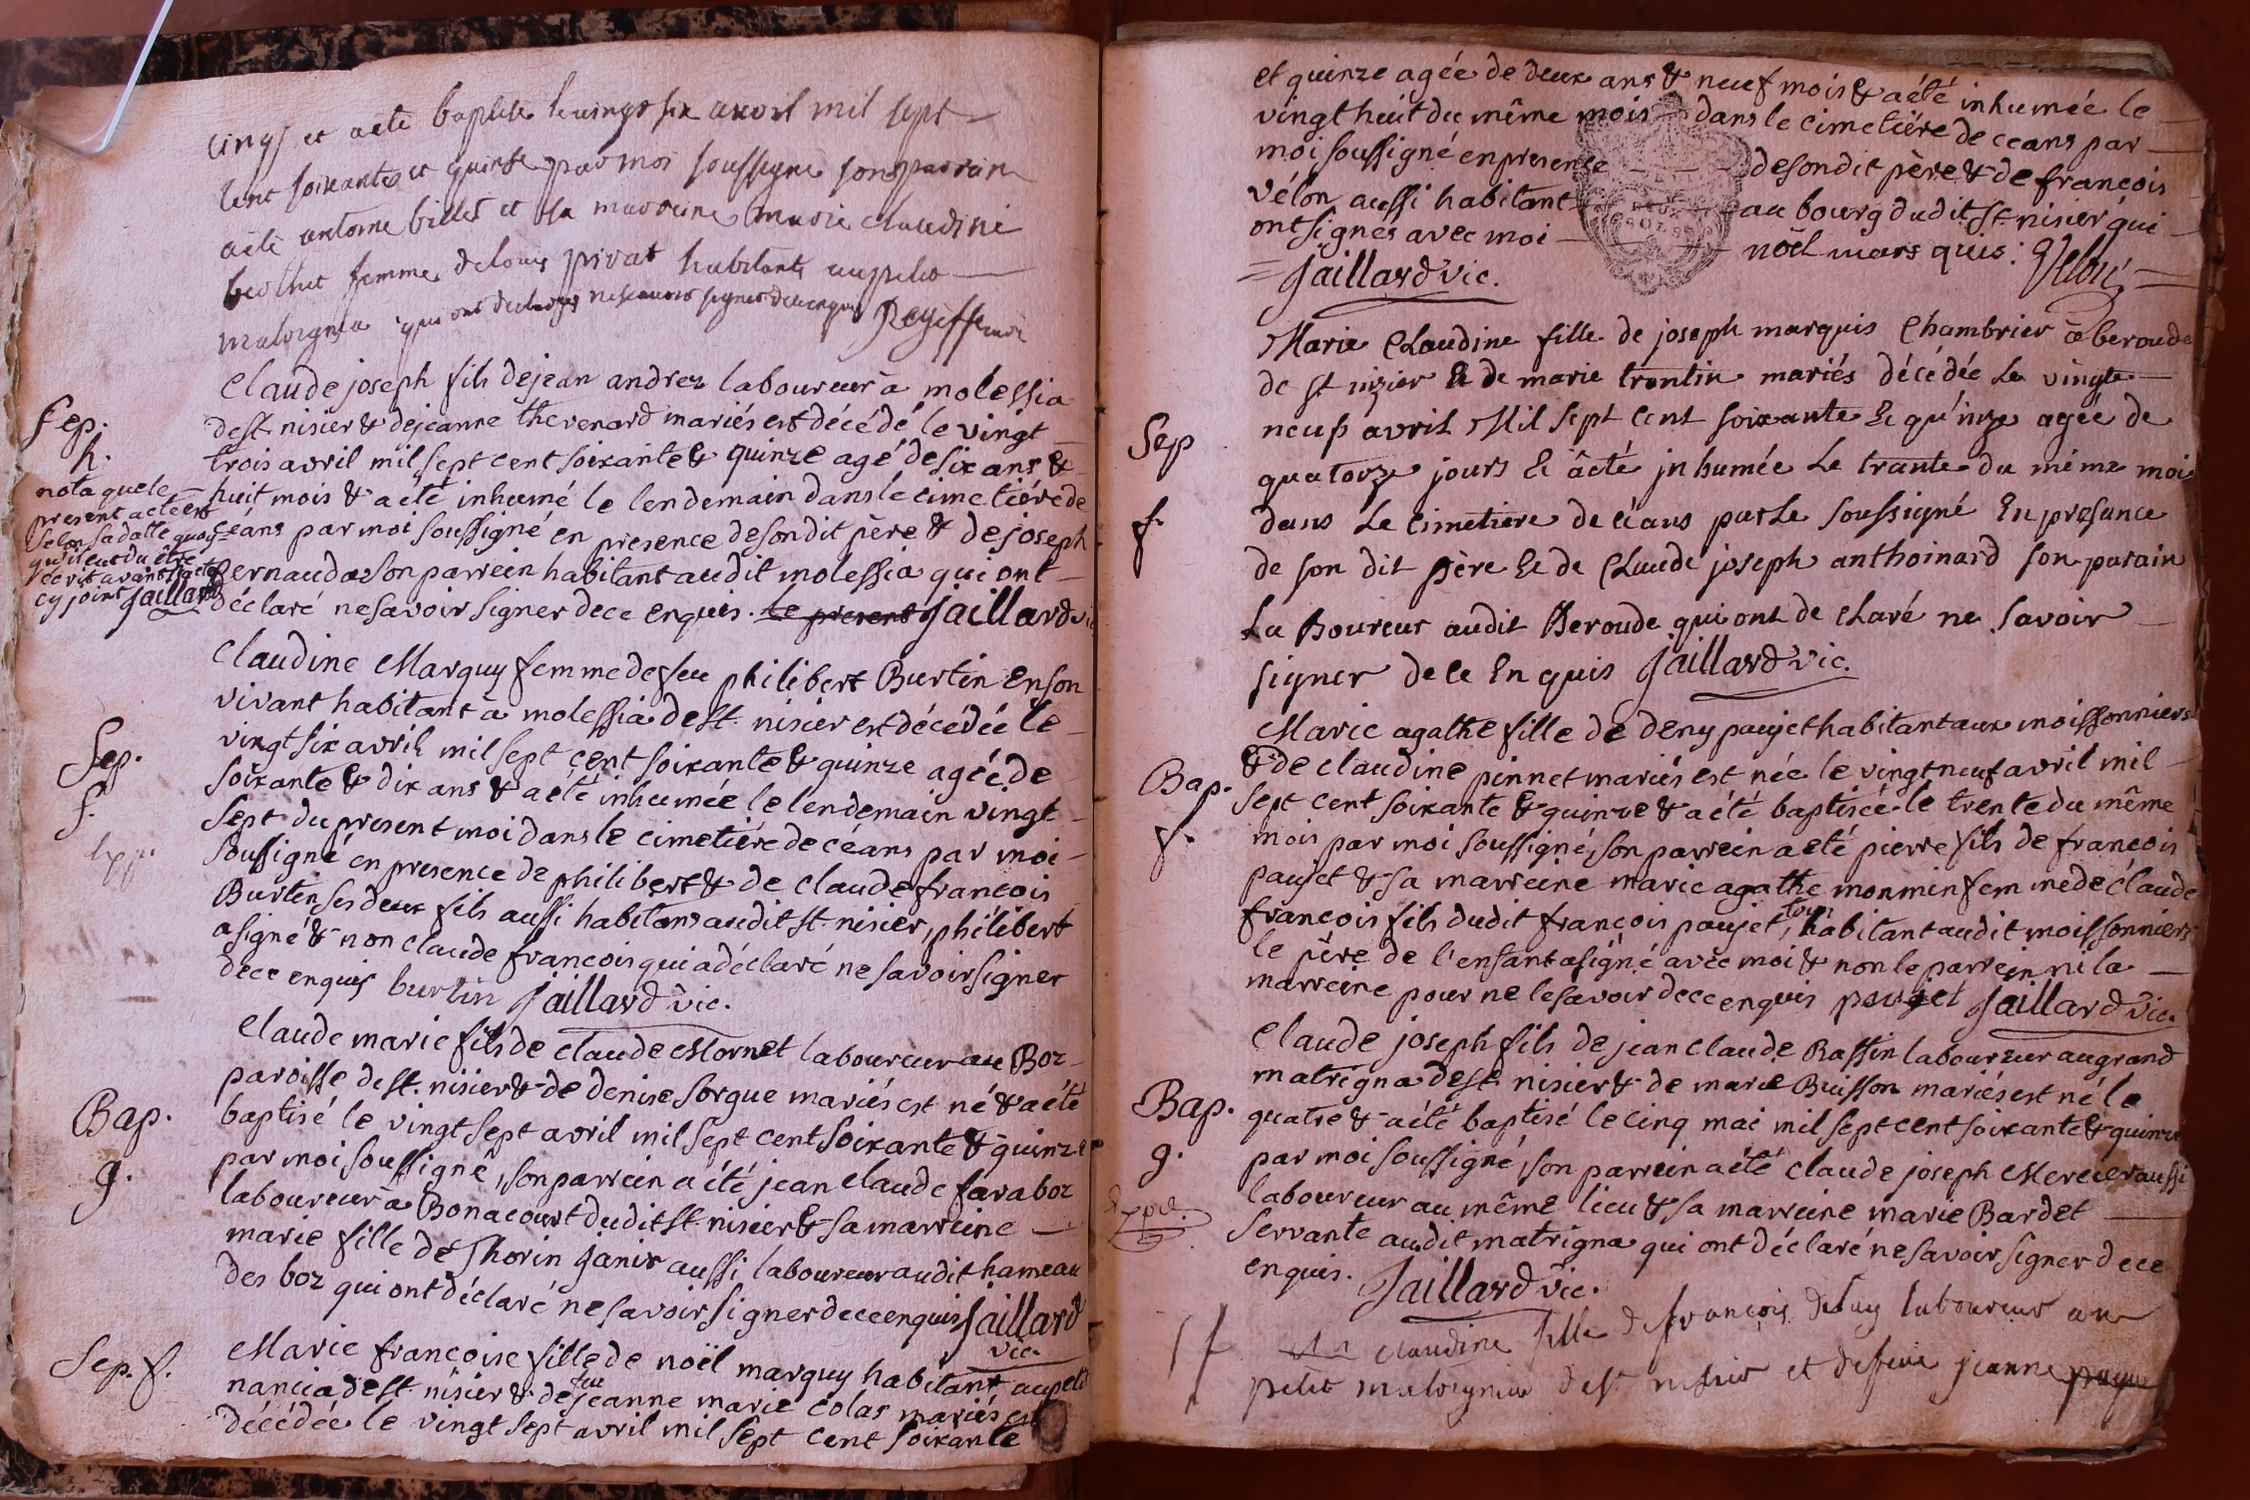 cinq et acté baptisé le vingt six avril mil sept
cent soixante et quinze par moi soussigné son parrain
acté antoine billet et sa marreine marie claudine
femme de louis privat habitants au petit
matrignia qui ont declarés ne scavoir signer de ce enquis
Claude joseph fils de jean andrez laboureur à molessia
de st. nisier & de jeanne thevenard mariés est décédé le vingt
trois avril mil sept cent soixante & quinze agé de six ans &
huit mois & a eté inhumé le lendemain dans le cimetiére de
céans par moi soussigné en presence de son dit père & de joseph
pernaud son parrein habitant audit molessia qui ont
déclaré ne savoir signer de ce enquis. le present Jaillard vic
Sep.
h.
nota que le
present acte est
selon sa datte quoi
qu'il eut du être
ecrit avant l'acte
cy joint Jaillard
Claudine Marguy femme de feu philibert Burtin en son
vivant habitant à molessia de st. nisier est décédée le
vingt six avril mil sept cent soixante & quinze agée de
soixante & dix ans & a été inhumée le lendemain vingt
sept du present moi dans le cimetiére de céans par moi
soussigné en presence de philibert & de claude francois
Burtin ses deux fils aussi habitans audit st. nisier, philibert
a signé & non claude francois qui a déclaré ne savoir signer
de ce enquis burtin Jaillard vic.
Sep.
f.
Claude marie fils de claude Mornet laboureur au Boz
paroisse de st. nisier & de denise sorgue mariés est né & a été
baptisé le vingt sept avril mil sept cent soixante & quinze
par moi soussigné, son parrein a été jean claude favaboz
laboureur à Bonacourt dudit st. nisier & sa marreine
marie fille de Thorin janix aussi laboureur audit hameau
des boz qui ont déclaré ne savoir signer de ce enquis Jaillard
vic.
Bap.
g.
Marie francoise fille de noël marguy habitant au petit
nancia de st. nisier & de feue jeanne marie colas mariés est
décédée le vingt sept avril mil sept cent soixante
Sep. f.
et quinze agée de deux ans & neuf mois & a été inhumée le
vingt huit du même mois dans le cimetiére de ceans par
moi soussigné en presence de son dit père & de francois
vélon aussi habitant au bourg dudit st. nisier qui
ont signés avec moi noël marquis: Velon
Jaillard vic.
Marie Claudine fille de joseph marquis Chambrier à beroude
de st nizier & de marie trontin mariés décédée le vingte
neuf avril Mil sept cent soixante & quinze agée de
quatorze jours & âcté jnhumée le trante du mème moi
dans le cimetiere de céans par le soussigné En presance
de son dit père & de Claude joseph anthoinard son parain
La Boureur audit Beroude qui ont de claré ne savoir
signer de ce En quis Jaillard vic.
Sep
f.
Marie agathe fille de deny paujet habitant aux moissonniers
& de claudine pinnet mariés est née le vingt neuf avril mil
sept cent soixante & quinze & a été baptisée le trente du même
mois par moi soussigné, son parrein a eté pierre fils de francois
paujet & sa marreine marie agathe monmin femme de claude
francois fils dudit francois paujet, tous habitant audit moissonniers
le père de l'enfant a signé avec moi & non le parrein ni la
marreine pour ne le savoir de ce enquis paujet Jaillard vic.
Bap.
f.
Claude joseph fils de jean claude Raffin laboureur au grand
matrigna de st. nisier & de marie Buisson mariés est né le
quatre & a été baptisé le cinq mai mil sept cent soixante & quinze
par moi soussigné, son parrein a été claude joseph Mercier aussi
laboureur au même lieu & sa marreine marie Bardet
servante audit matrigna qui ont déclaré ne savoir signer de ce
enquis. Jaillard vic.
Bap.
g.
claudine fille de françois laboureur au
petit matrignia de st nisier et de feue jeanne